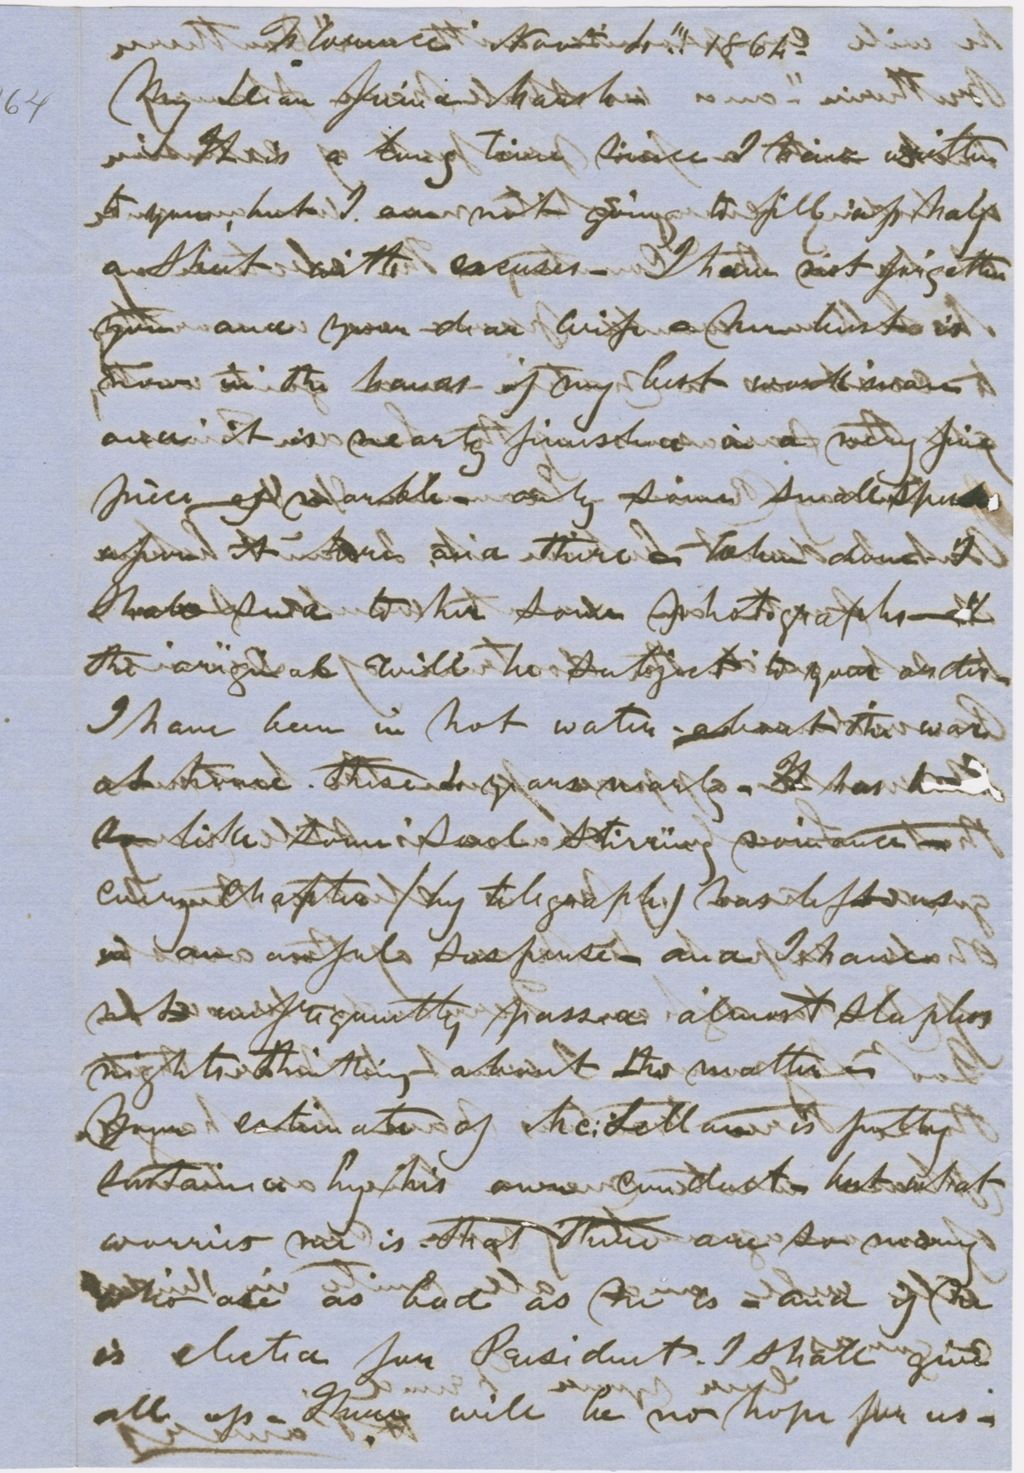 Florence Nov. 4th 1864.
My Dear friend Marsh
It is a long time since I have written
to you, but I am not going to fill up half
a sheet with excuses - I have not forgotten
you and your dear wife - Her bust is
now in the hands of my best workman
and it is nearly finished in a very fine
piece of marble - only some small specks
upon it here and there - When done I
shall send to her some photographs -
the original will be subject to your order -
I have been in hot water about the war
at home these 4 years nearly - It has
like some sad stirring romance -
every chapter (by telegraph) has left us
in an awful suspense - and I have
not unfrequently passed almost sleepless
nights thinking about the matter -
Your estimate of McLellan is fully
sustained by his own conduct - but what
worries me is that there are so many
who are as bad as he is - and if he
is elected for President. I shall give
all up - There will be no hope for us -
64